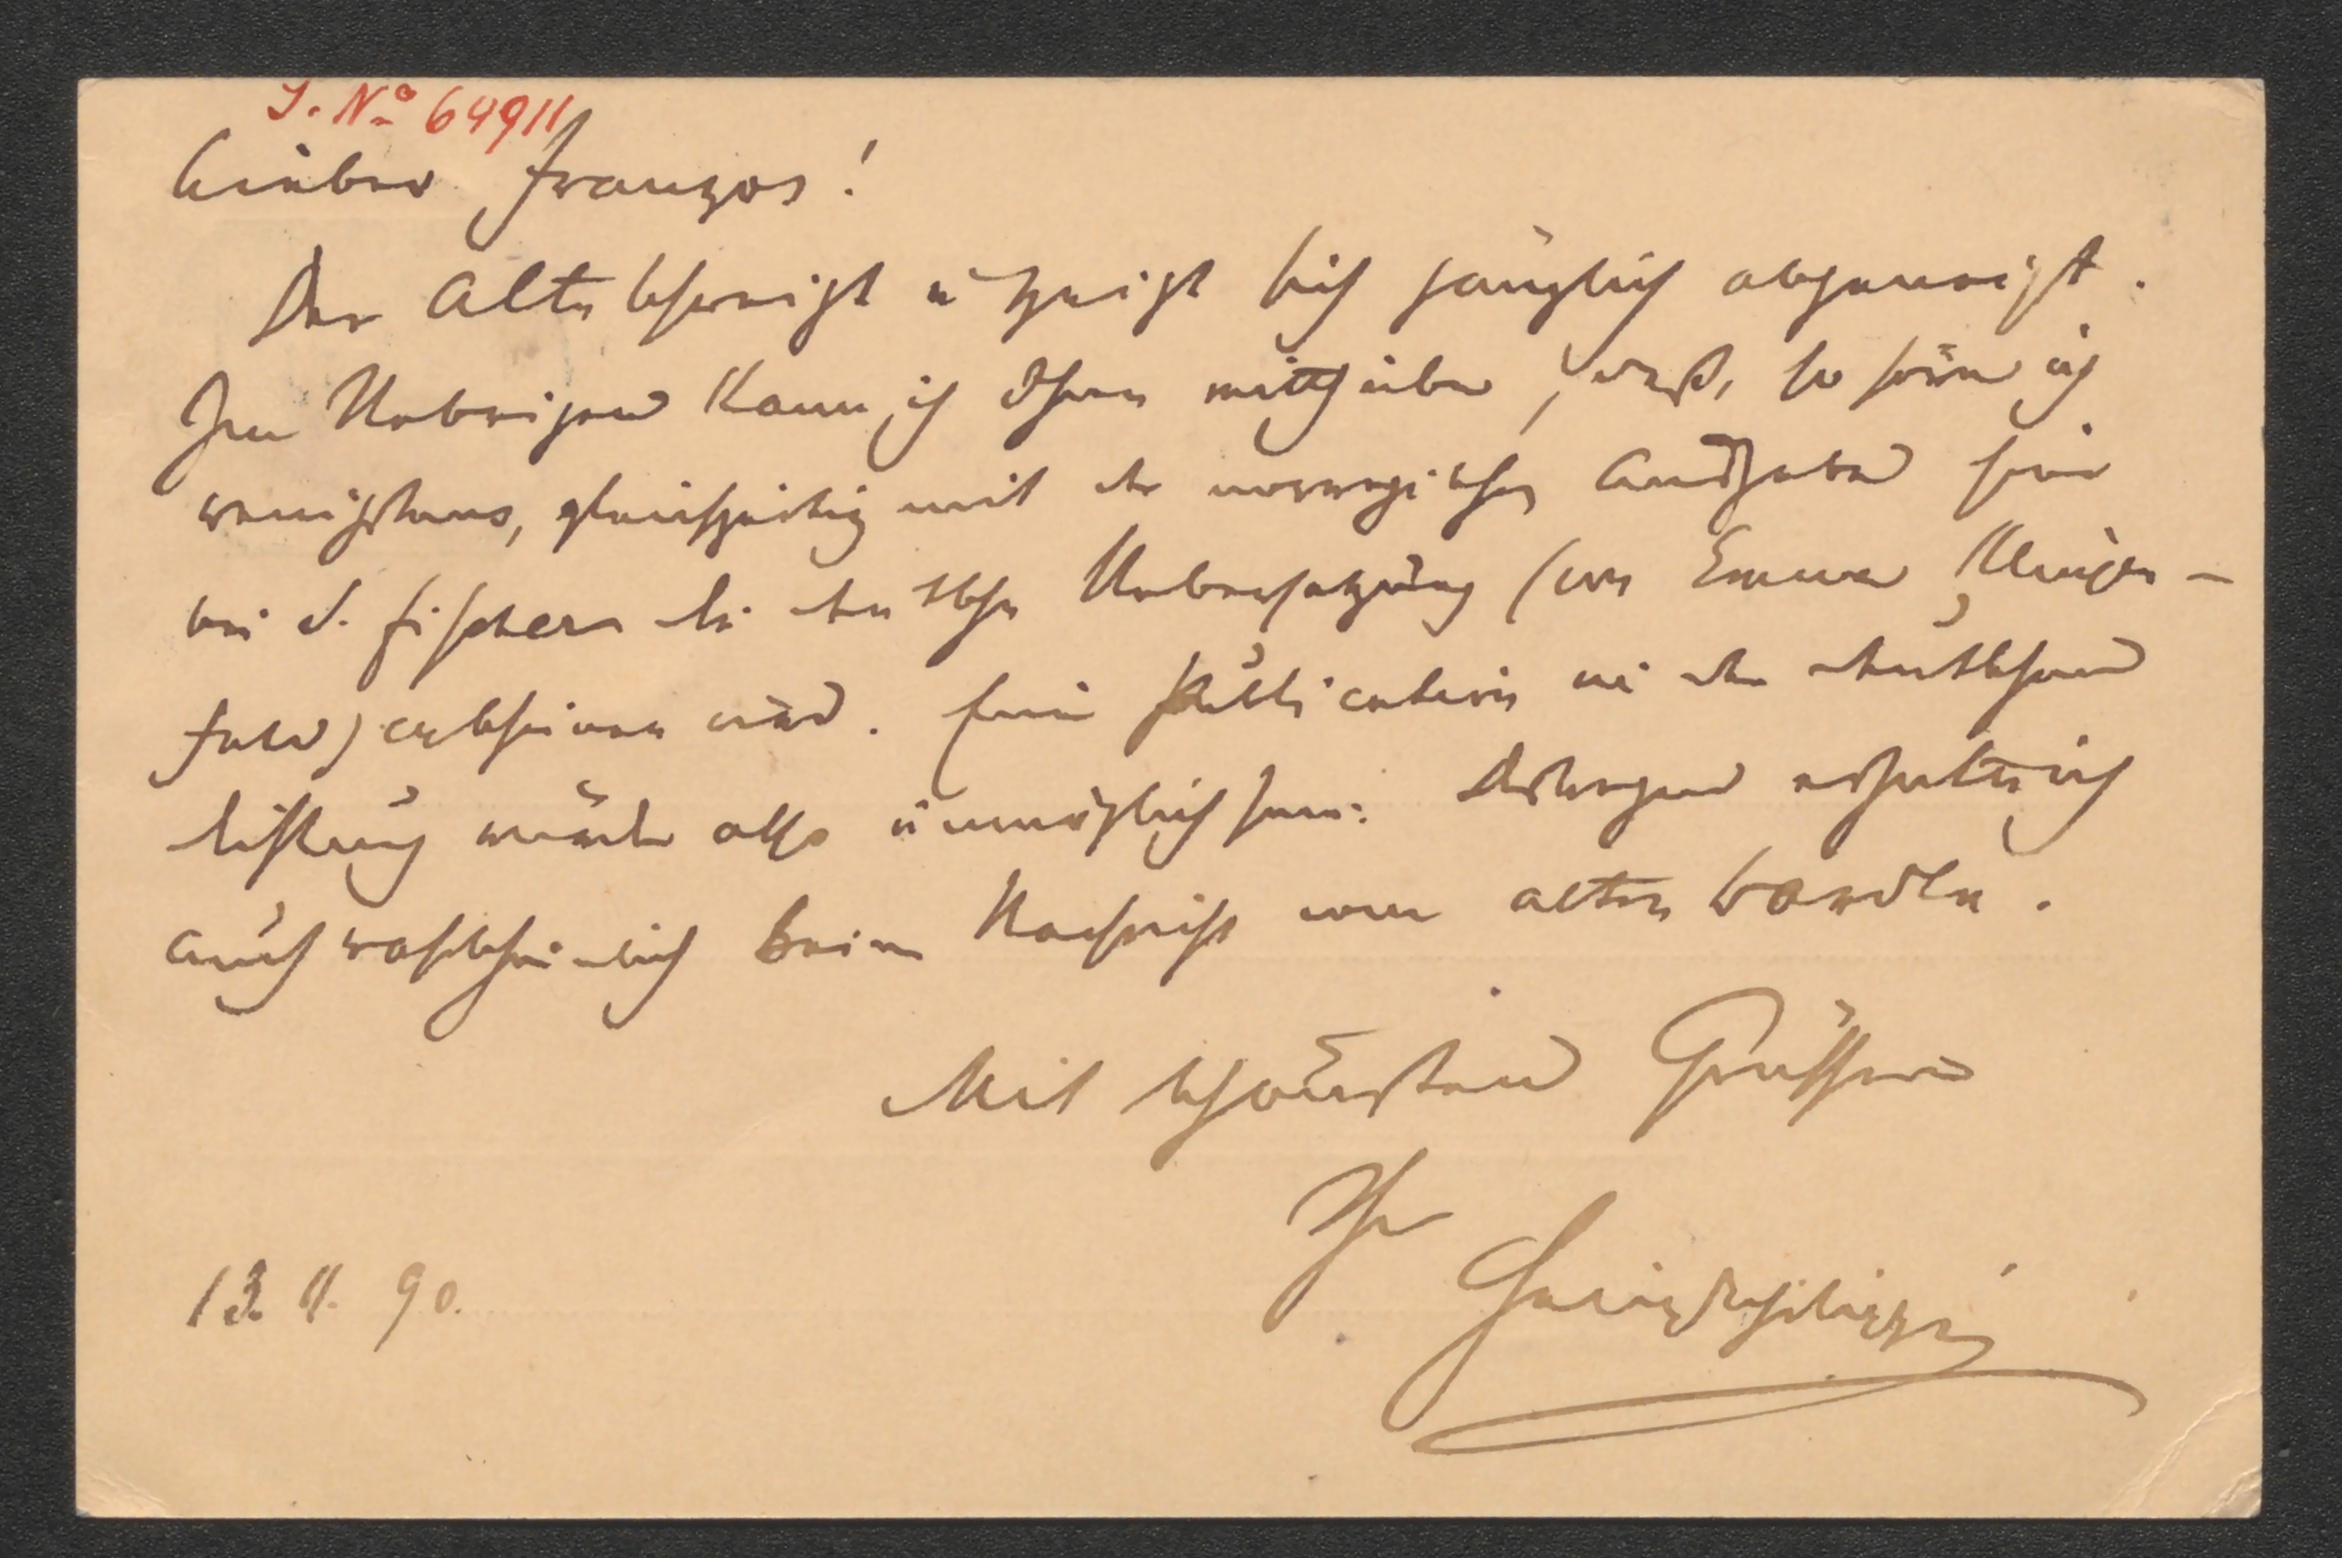 I. N° 64911
Lieber Franzos!
Der Alte schweigt u zeigt sich gänzlich abgeneigt.
Im Uebrigen kann ich Ihnen mittheilen, daß, so höre ich
wenigstens, gleichzeitig mit der norwegischen Ausgabe hier
bei S. Fischer die deutsche Uebersetzung (von Emma Klingen-
feld) erscheinen wird. Eine Publication in der deutschen
Dichtung würde also unmöglich sein. Deswegen erhalte ich
auch wahrscheinlich keine Nachricht vom alten
Mit schönsten Grüssen
Ihr
13. 11. 90.